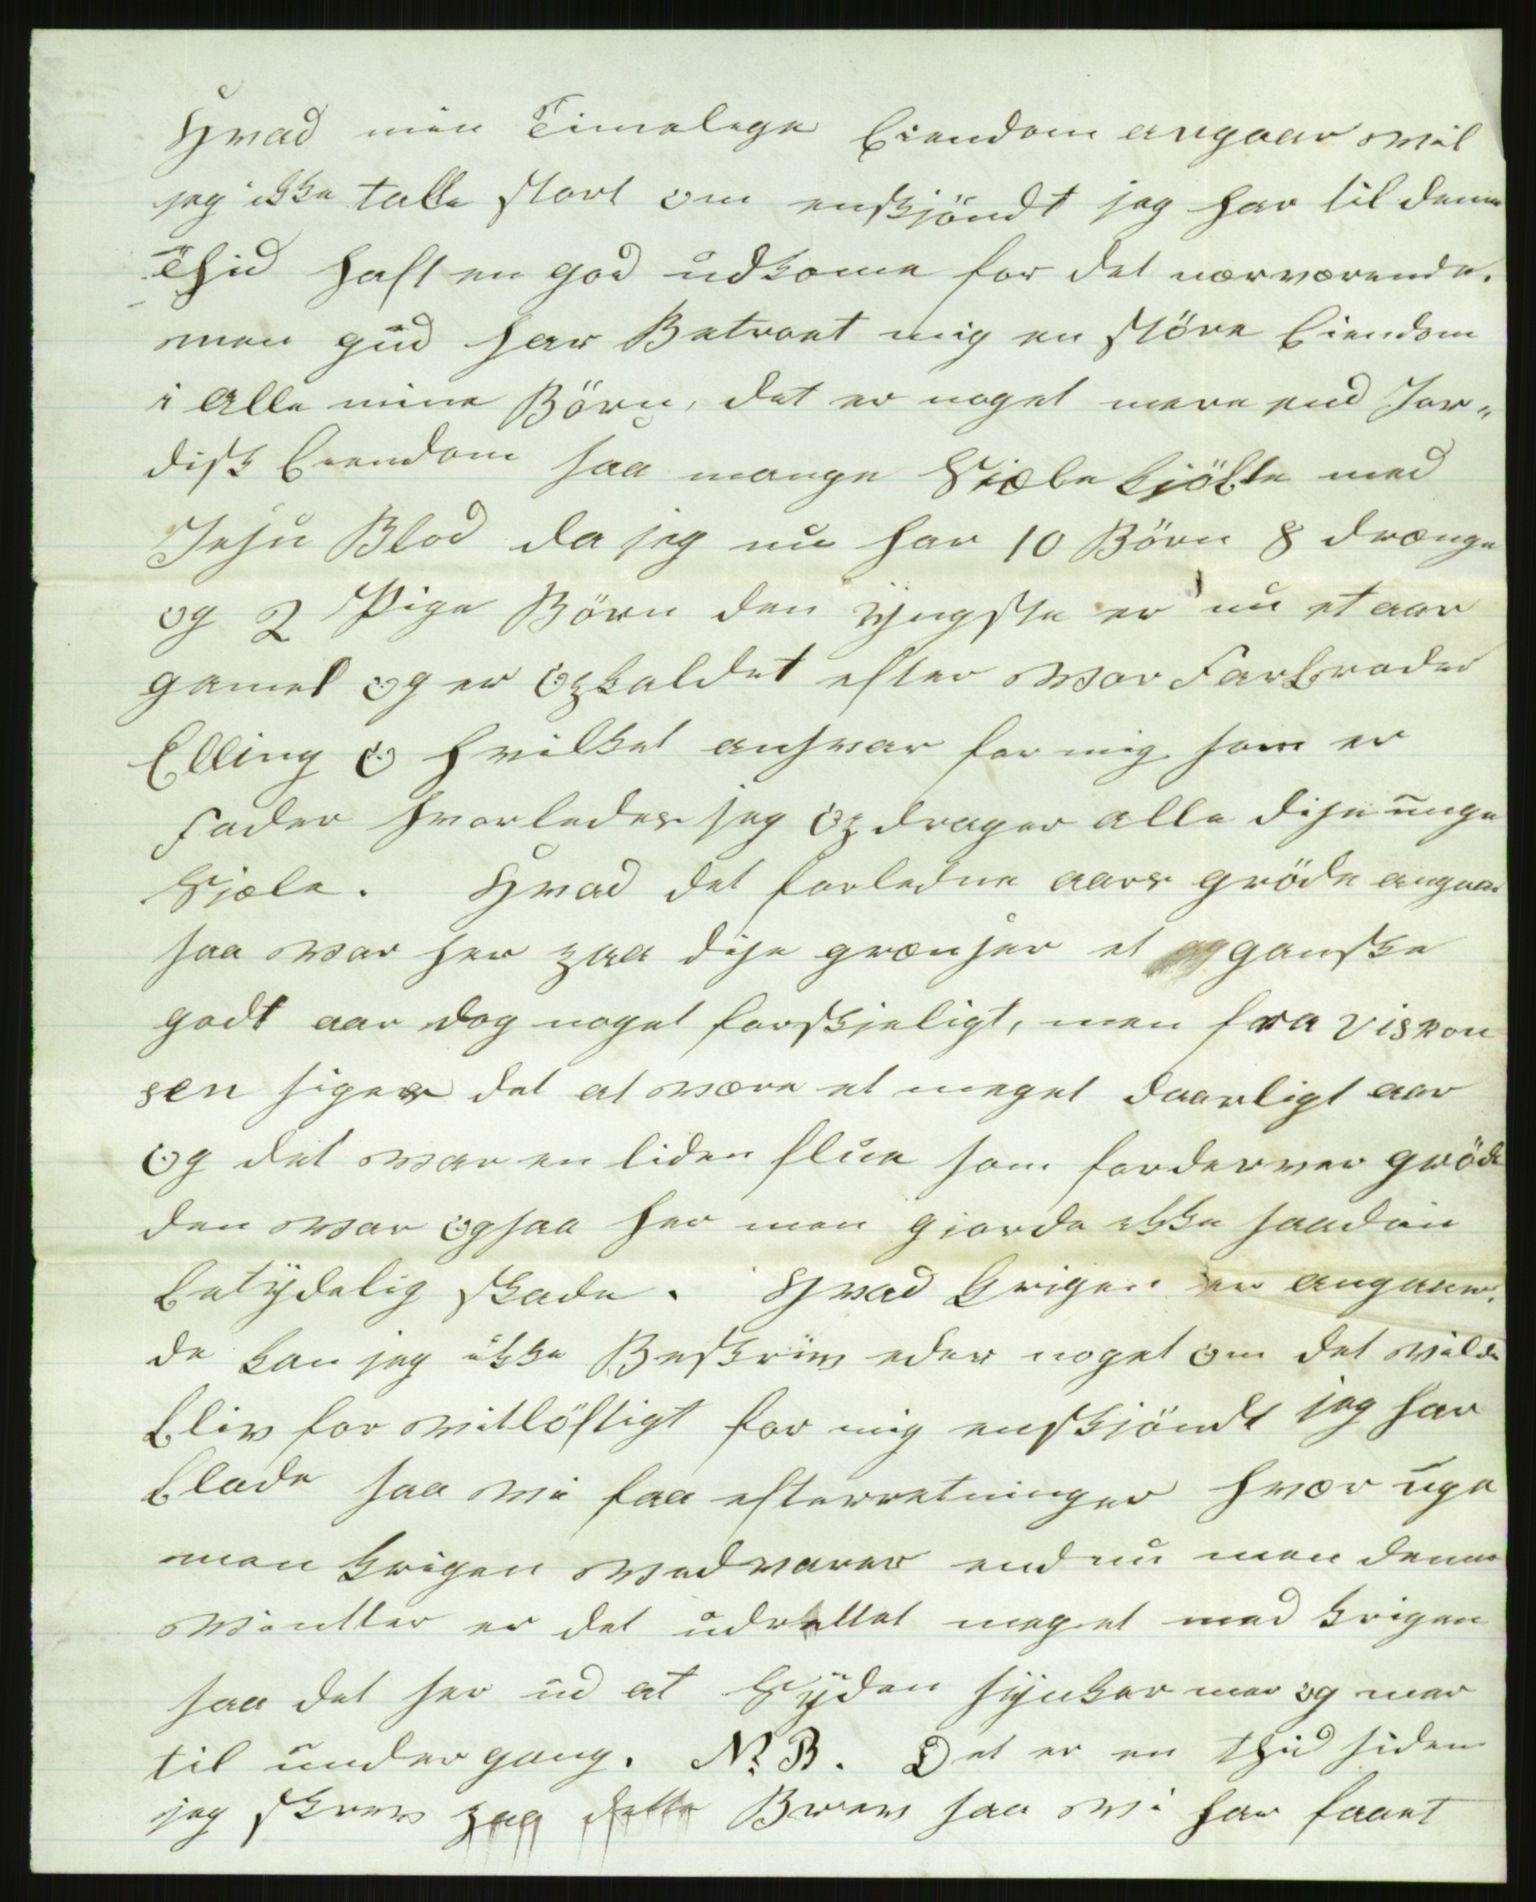 Hvad min Timelege Eiendom angaar vil
jeg ikke talle stort om enskjöndt jeg har til denne
Thid haft en god udkome for det nærværende.
men gud har Betroet mig en störe Eiendom
i alle mine Börn, det er noget mere end Jor„
disk Eiendom saa mange Siæle kjöbte med
Jesu Blod da jeg nu har 10 Börn 8 drænge
og 2 Pige Börn den yngste er nu et aar
gamel og er opkaldet efter vor Farbroder
Elling O hvilket ansvar for mig som er
Fader hvorledes jeg opdrager alle dise unge
Sjæle. Hvad det forledne aars gröde angaar
saa var her paa dise grænser et ganske
godt aar dog noget forskjeligt, men fra Viskon
sen siges det at være et meget daarligt aar
og det var en liden flue som forderver gröde
den var ogsaa her men giorde ikke saadan
betydelig skade. Hvad krigen er angaaen„
de kan jeg ikke Beskriv eder noget om det vilde
bliv for vitlöftigt for mig enskjöndt jeg har
blade saa vi faa efterretninger hvær uge
men krigen vedvarer endnu men denne
Vintter er det udrettet meget med krigen
saa det ser ud at Syden synker mer og mer
til undergang. N.B. Det er en thid siden
jeg skrev paa dette Brev saa vi har faaet